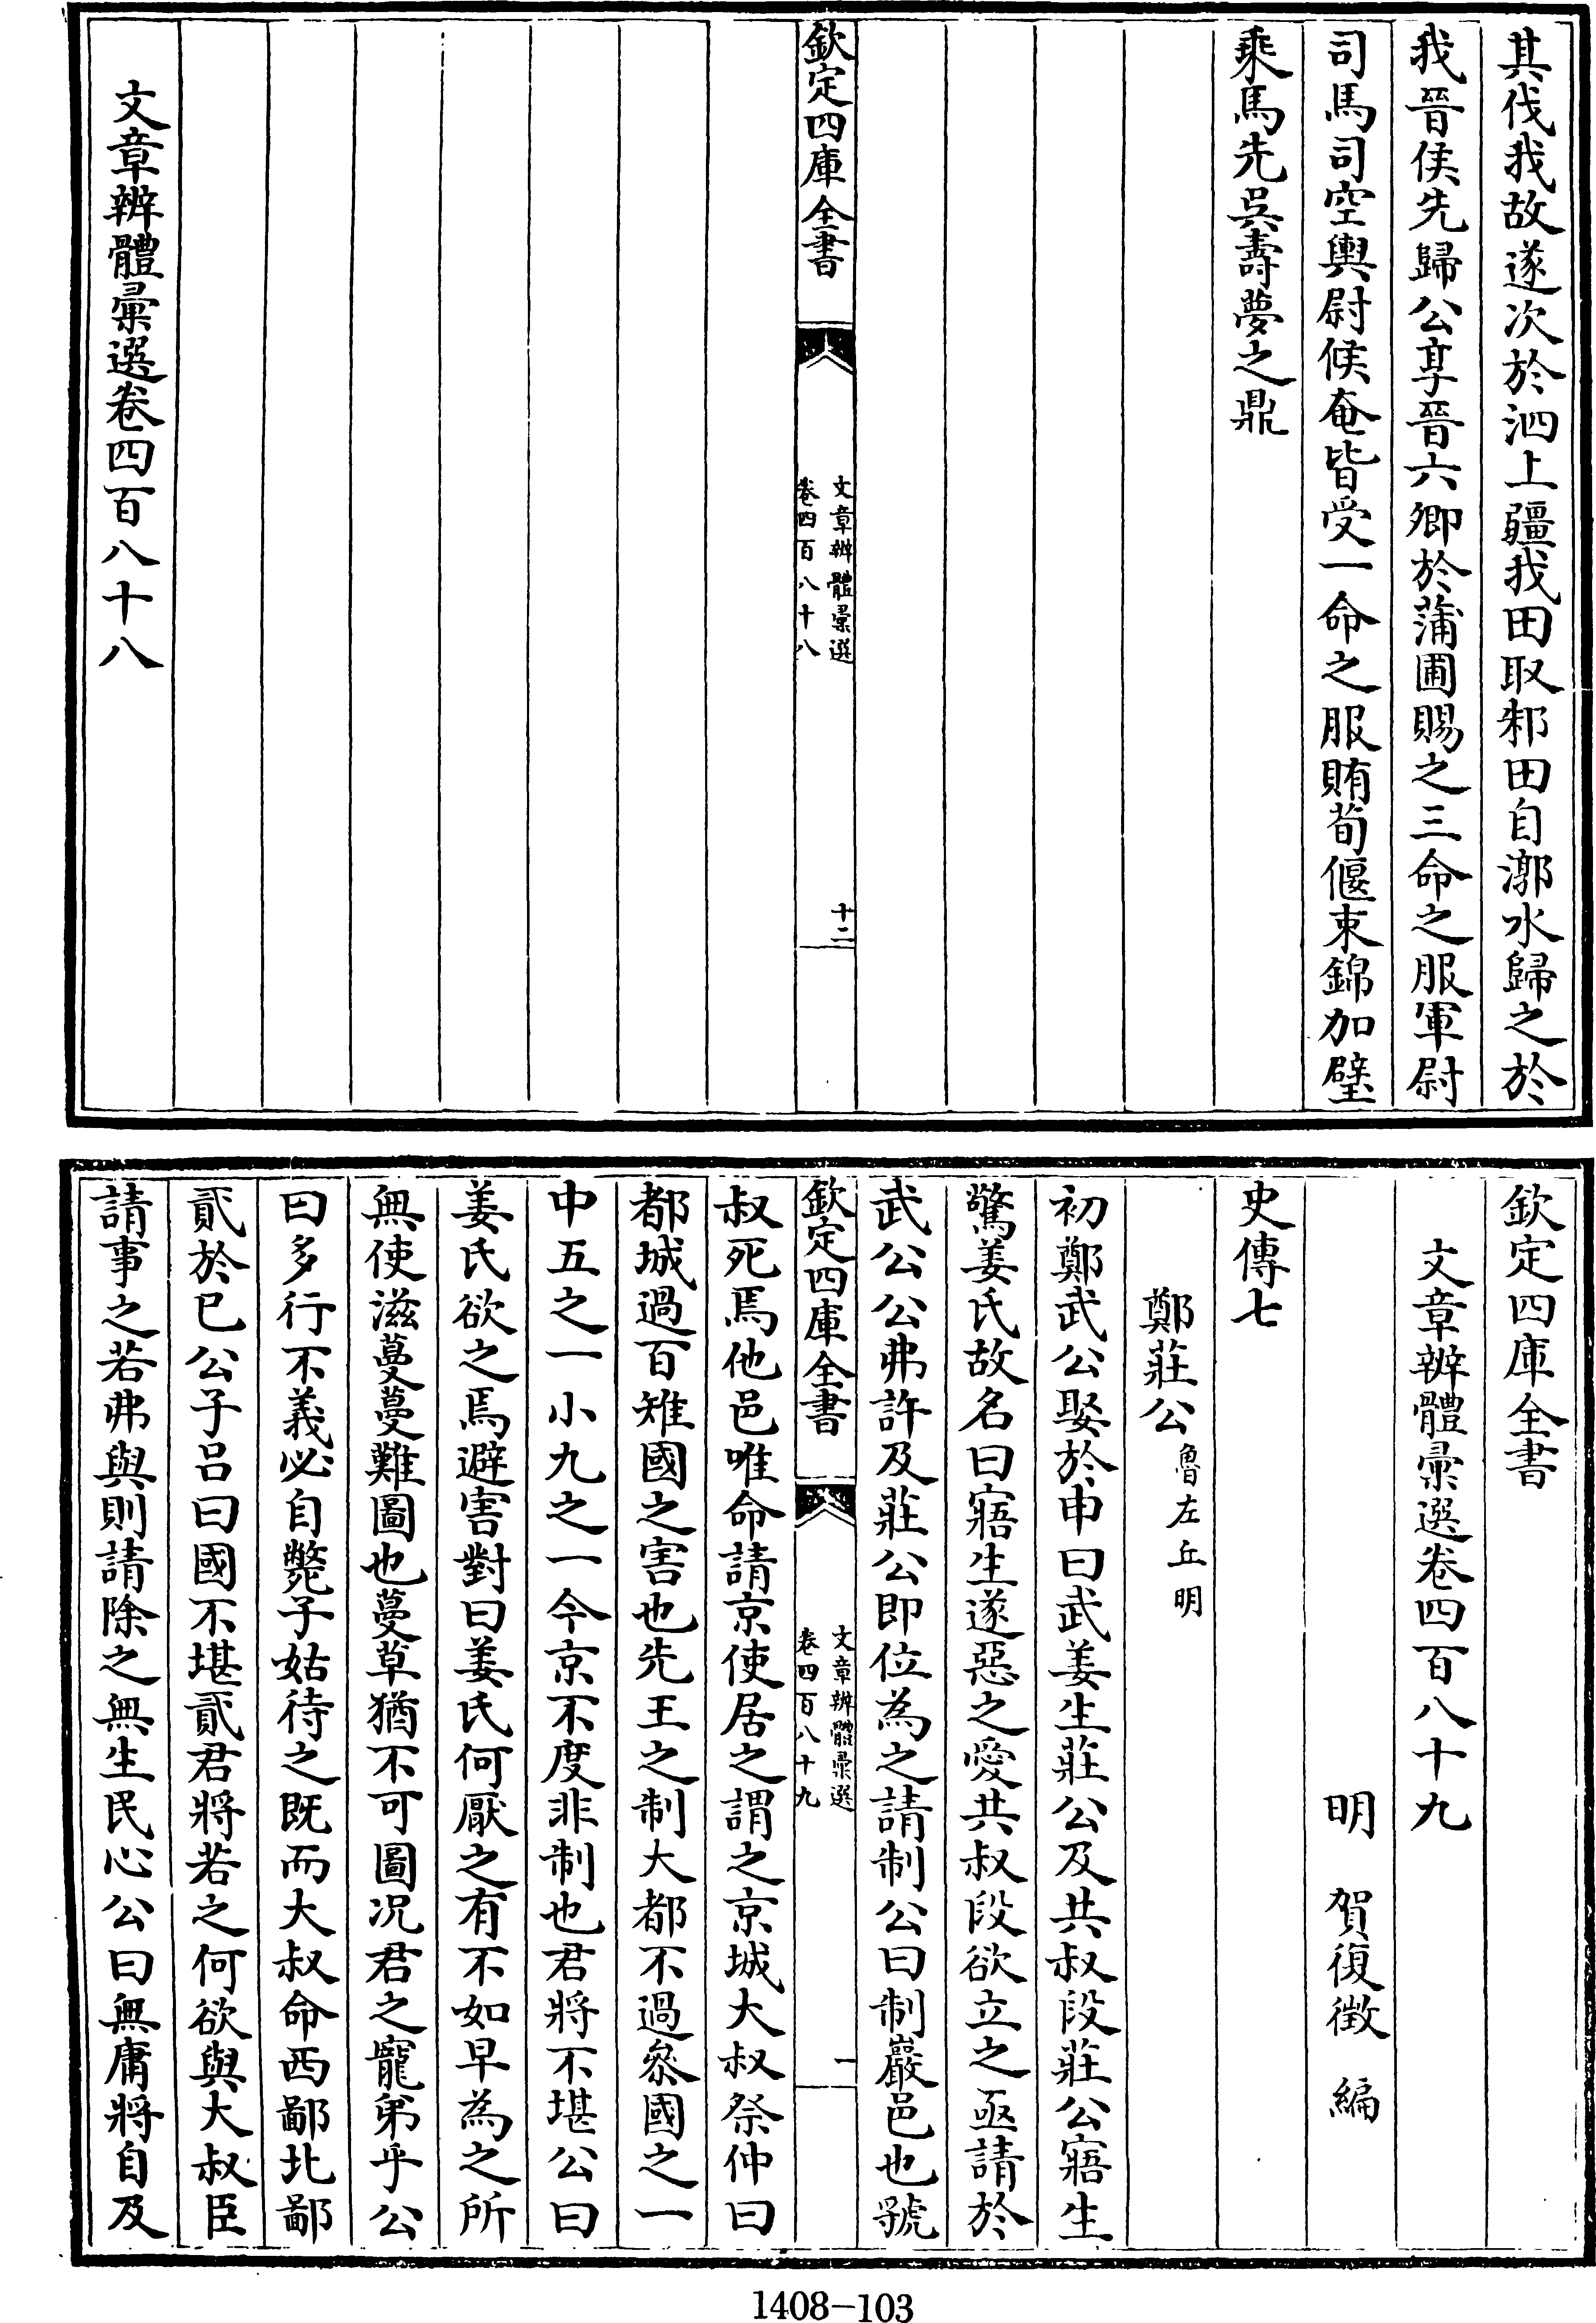 其伐我故遂次於泗上疆我田取邾田自漷水歸之於
我晉侯先歸公享晉六卿於蒲圃賜之三命之服軍尉
司馬司空輿尉候奄皆受一命之服賄荀偃束錦加璧
乘馬先吳壽夢之鼎
欽定四庫全書
文章辨體彙選
卷四百八十八
十二
文章辨體彙選卷四百八十八
欽定四庫全書
文章辨體彙選卷四百八十九
明 賀復徵 編
史傳七
鄭莊公魯左丘明
初鄭武公娶於申曰武姜生莊公及共叔段莊公寤生
驚姜氏故名曰寤生遂惡之愛共叔段欲立之亟請於
武公公弗許及莊公即位為之請制公曰制巖邑也虢
欽定四庫全書
文章辨體彙選
卷四百八十九
一
叔死焉他邑唯命請京使居之謂之京城大叔祭仲曰
都城過百雉國之害也先王之制大都不過叅國之一
中五之一小九之一今京不度非制也君將不堪公曰
姜氏欲之焉避害對曰姜氏何厭之有不如早為之所
無使滋蔓蔓難圖也蔓草猶不可圖况君之寵弟乎公
曰多行不義必自斃子姑待之既而大叔命西鄙北鄙
貳於已公子呂曰國不堪貳君將若之何欲與大叔臣
請事之若弗與則請除之無生民心公曰無庸將自及
1408-103